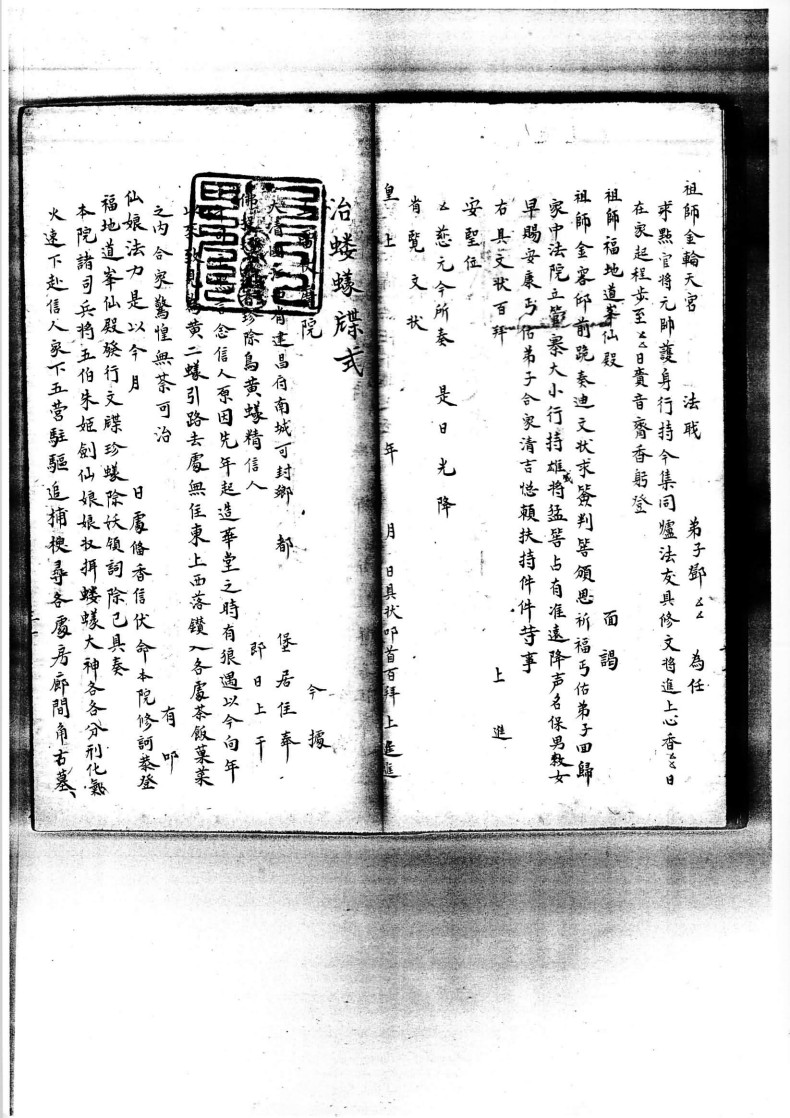 祖師金輪天宮 法戝 弟子鄧厶厶 為任
求點官將元帥護身行持今集同爐法友具修文將進上心香厶厶日
在家起程步至厶厶日賫音齋香躬登
祖師福地道峯仙殿 面謁
祖師金容邱前跪奏廸文狀求簽判筶頒恩祈福丐佑弟子回歸
家中法院立營寨大小行持雄威將猛筶占有准遠降声名保男救女
早賜安康丐佑弟子合家清吉惣賴扶持件件荨事
右具文狀百拜 上進
安聖任
厶慈元今所奏 是日光降
肯覽文狀
皇上 年 月 日具狀叩首百拜上進
治螻蟻牒式
院 今據
大清國 省建昌府南城可封鄉 都 堡居住奉
佛 珍除鳥黃蟻精信人 即日上干
念信人原因先年起造華堂之時有狼遇以今向年
黃二蟻引路去處無住東上西落鑽入各處茶飯菓菜
之內合家驚惶無茶可治 有叩
仙娘法力是以今月 日處偹香信伏命本院修詞恭登
福地道峯仙殿發行文牒珍蟻除妖領詞除已具奏
本院諸司兵將五伯朱姬劍仙娘娘收捐螻蟻大神各各分刑化氣
火速下赴信人家下五营駐驅追捕梗尋各處房廊間角古墓